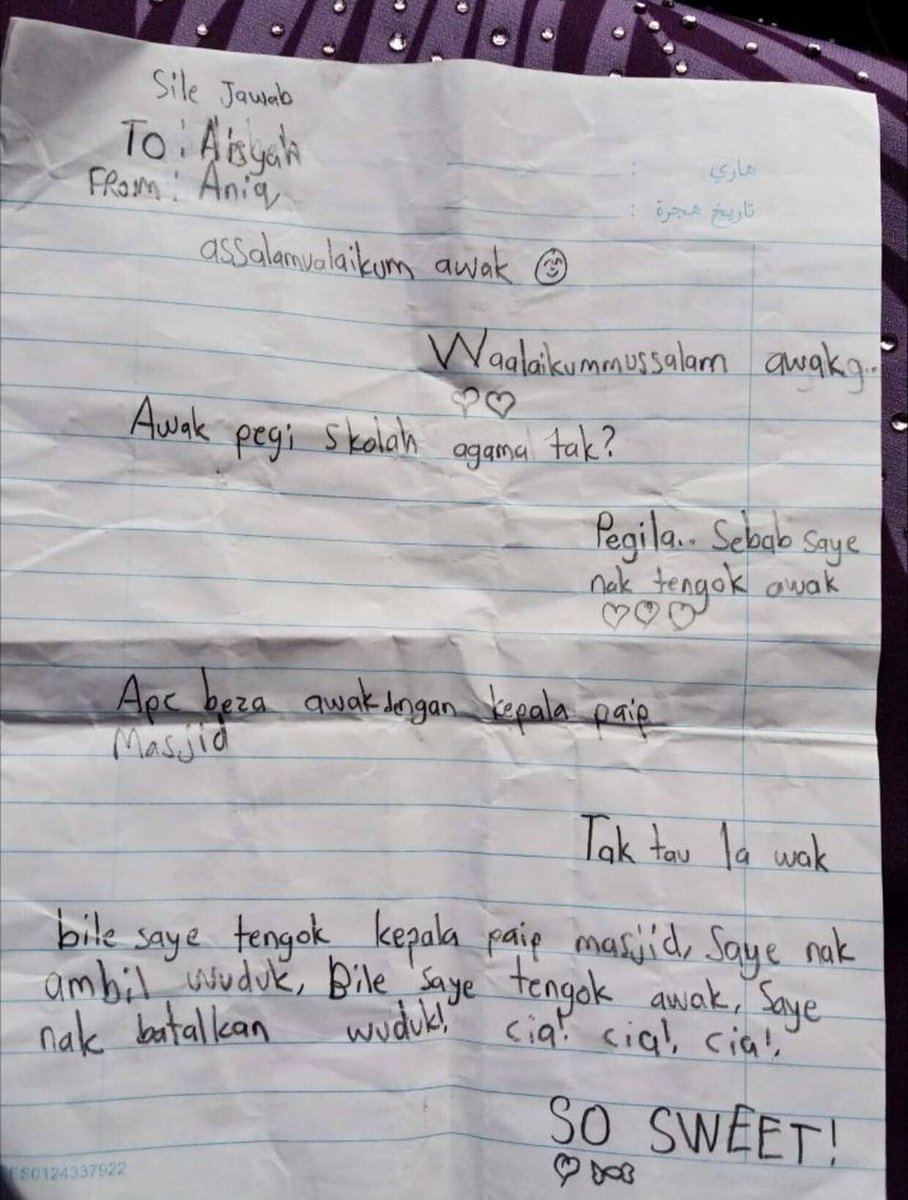 Sile Jawab
To : Aisyah
FRom : Aniq
هاري :
تاريخ هجرة :
assalamualaikum awak
Waalaikummussalam awakg..
Awak pegi skolah agama tak?
Pegila.. Sebab saye
nak tengok awak
Ape beza awak dengan kepala paip
Masjid
Tak tau la wak
bile saye tengok kepala paip masjid, saye nak
ambil wuduk, Bile saye tengok awak, saye
nak batalkan wuduk! cia! cia! cia!,
SO SWEET!
ES0124337922